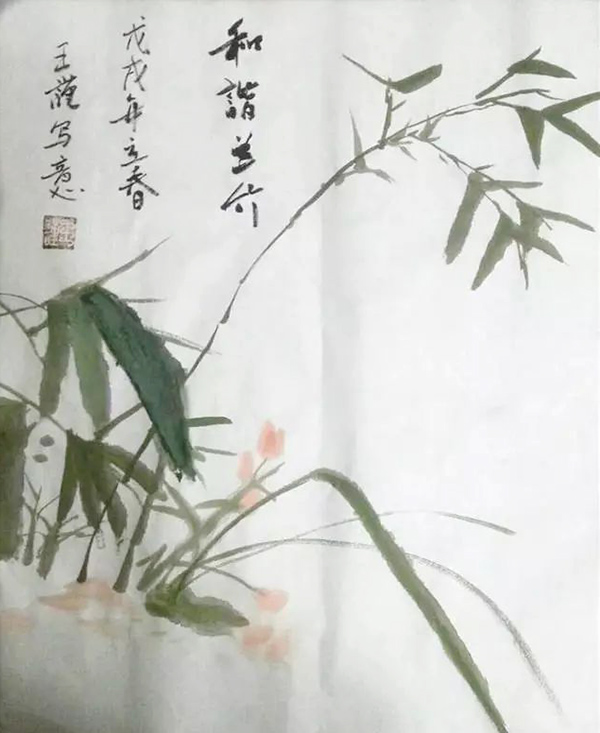 和諧兰竹
戊戌年立春
王謹写意